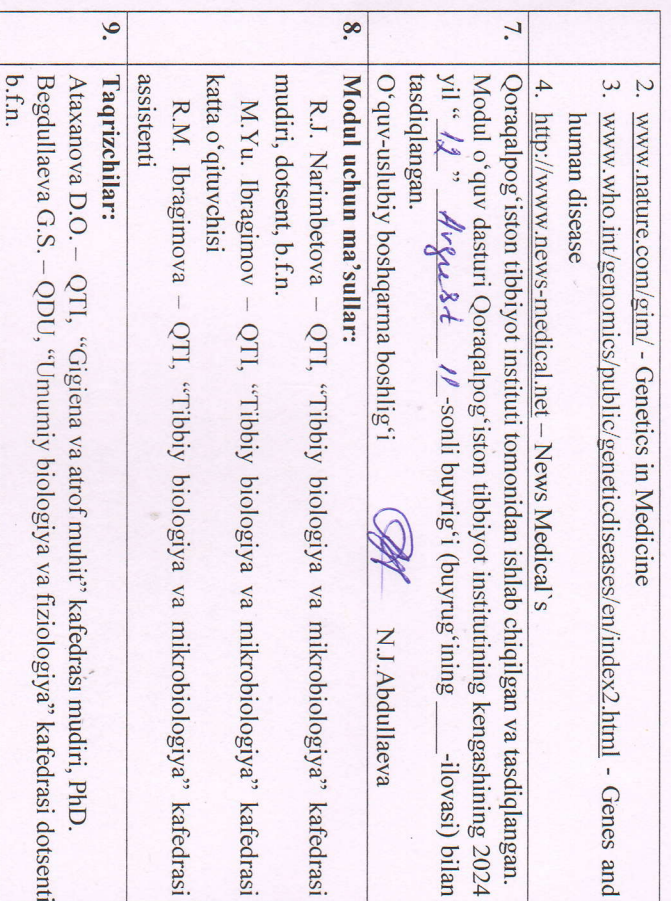 2. www.nature.com/gim/ - Genetics in Medicine
3. www.who.int/genomics/public/geneticdiseases/en/index2.html - Genes and
human disease
4. http://www.news-medical.net – News Medical`s
7. Qoraqalpog‘iston tibbiyot instituti tomonidan ishlab chiqilgan va tasdiqlangan.
Modul o‘quv dasturi Qoraqalpog‘iston tibbiyot institutining kengashining 2024
yil “ 12 ” Avgust 11 -sonli buyrig‘i (buyrug‘ining ____-ilovasi) bilan
tasdiqlangan.
O‘quv-uslubiy boshqarma boshlig‘i N.J.Abdullaeva
8. Modul uchun ma’sullar:
R.J. Narimbetova – QTI, “Tibbiy biologiya va mikrobiologiya” kafedrasi
mudiri, dotsent, b.f.n.
M.Yu. Ibragimov – QTI, “Tibbiy biologiya va mikrobiologiya” kafedrasi
katta o‘qituvchisi
R.M. Ibragimova – QTI, “Tibbiy biologiya va mikrobiologiya” kafedrasi
assistenti
9. Taqrizchilar:
Ataxanova D.O. – QTI, “Gigiena va atrof muhit” kafedrasi mudiri, PhD.
Begdullaeva G.S. – QDU, “Umumiy biologiya va fiziologiya” kafedrasi dotsenti
b.f.n.